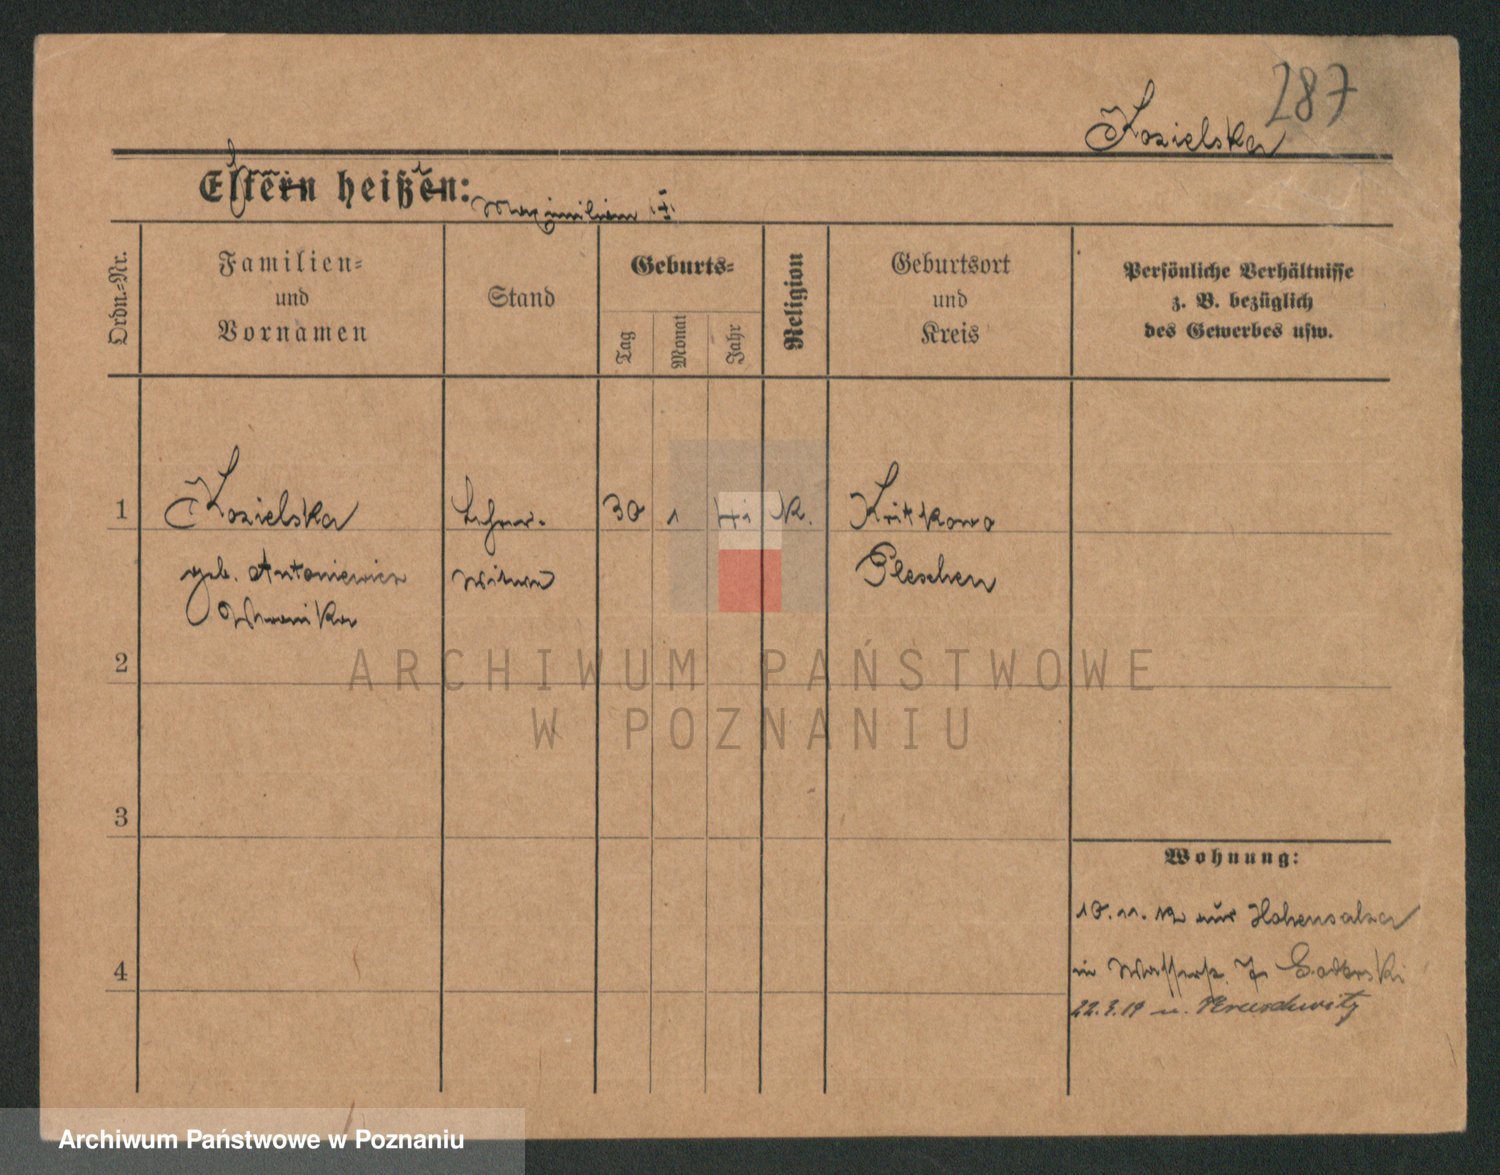 287
Kozielska
Eltern heißen:
Maximilian
Ordn.-Nr.
Familien-
und
Vornamen
Stand
Geburts-
Tag
Monat
Jahr
Religion
Geburtsort
und
Kreis
Persönliche Verhältnisse
z. B. bezüglich
des Gewerbes usw.
1
Kozielska
geb. Antoniewicz
Lehrer-
witwe
30
1
k.
Pleschen
2
ARCHIWUM PAŃSTWOWE
W POZNANIU
3
Wohnung:
10.11.12 aus Hohensalza
4
in Wasserstr. 7
22.3.19 n. Kruschwitz
Archiwum Państwowe w Poznaniu